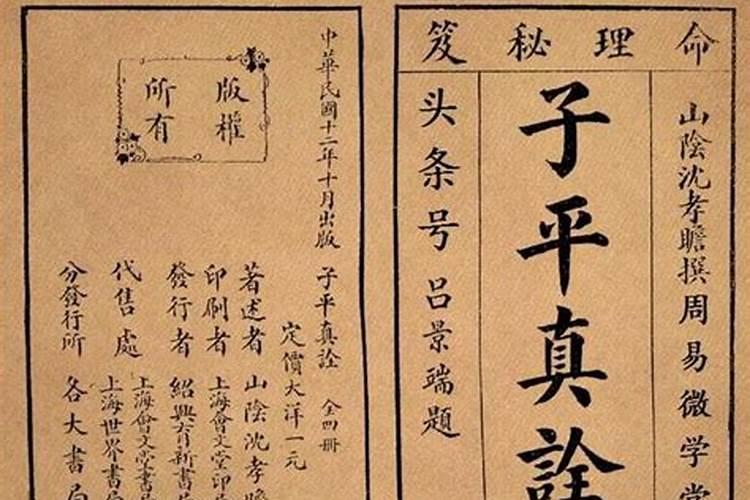 命理秘笈
山陰沈孝瞻撰周易微学堂
子平真詮
头条号吕景端题
版權
所有
中華民國十二年十月出版
子平真詮 全四冊
定價大洋一元
著述者 山陰沈孝瞻
印刷者 上海會文堂印
發行者 紹興育新書
上海會文堂書
代售處 上海世界書局
分發行所 各大書局